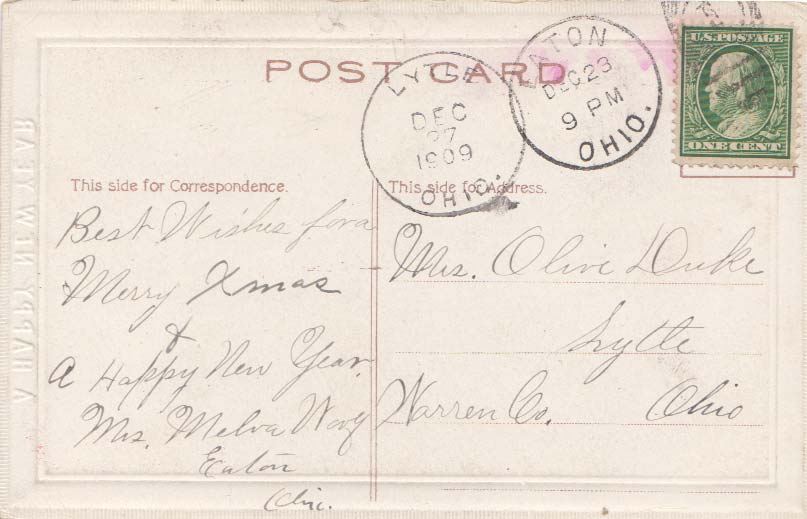 POST CARD
LYTLE
DEC
27
1909
OHIO.
EATON
DEC 23
9 PM
OHIO.
U.S. POSTAGE
ONE CENT
This side for Correspondence.
This side for Address.
Best Wishes for a
Merry Xmas
&
A Happy New Year.
Mrs. Melva
Eaton
Ohio.
Mrs. Olive Duke
Lytle
Warren Co. Ohio
A HAPPY NEW YEAR